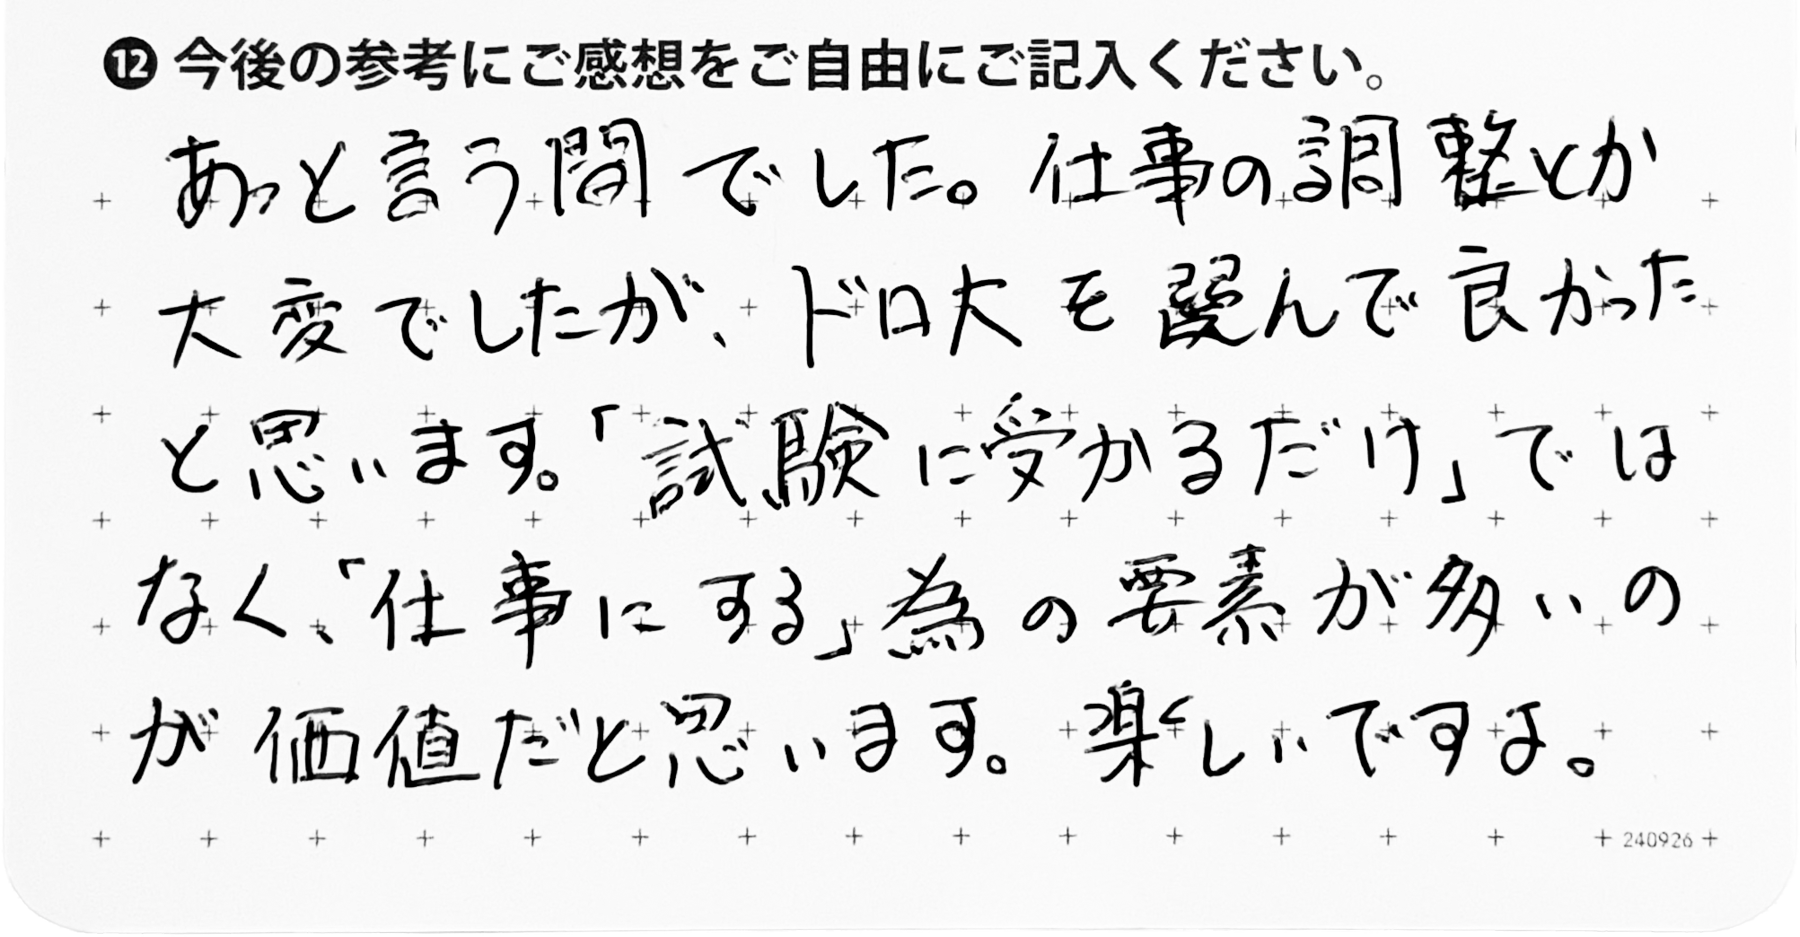 ⓬ 今後の参考にご感想をご自由にご記入ください。
あっと言う間でした。仕事の調整とか
大変でしたが、ドロ大を選んで良かった
と思います。「試験に受かるだけ」では
なく、「仕事にする」為の要素が多いの
が価値だと思います。楽しいですよ。
240926